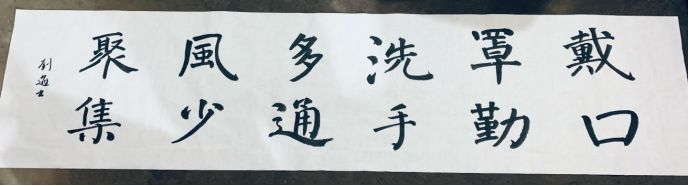 戴口
罩勤
洗手
多通
風少
聚集